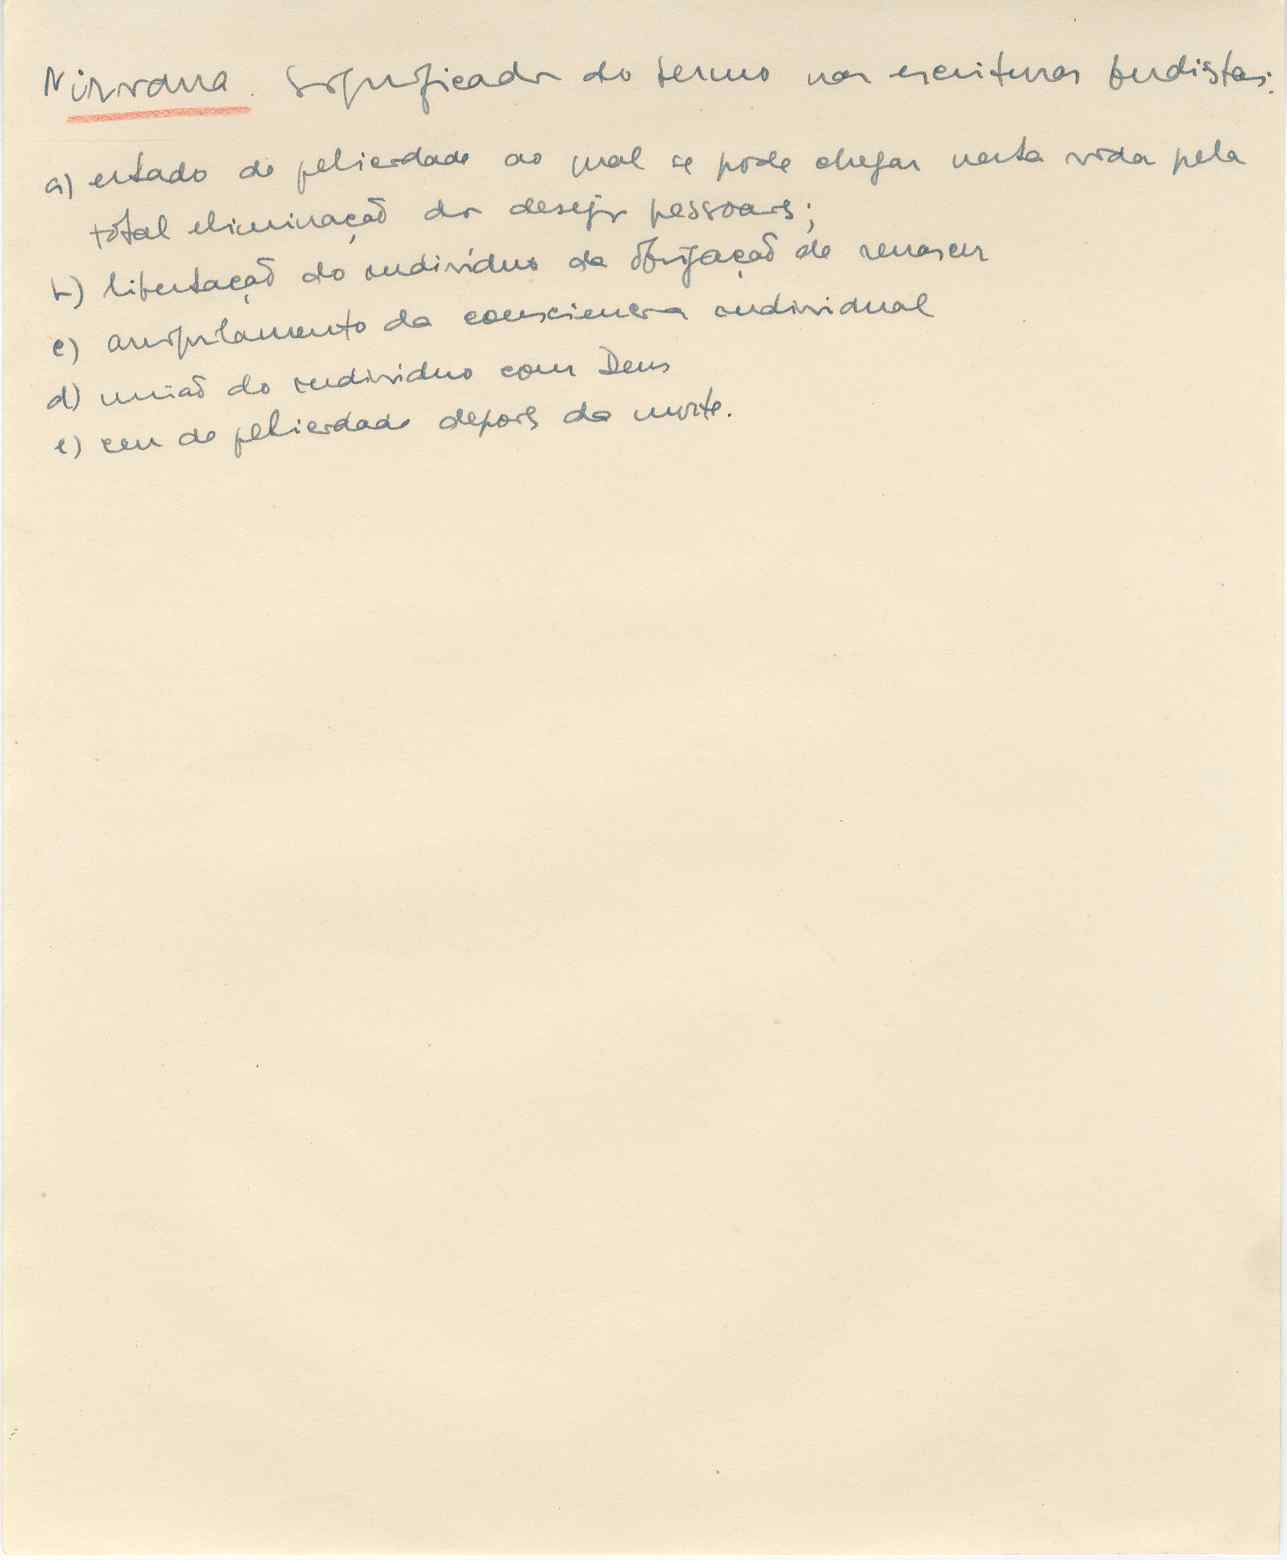 Nirvana. Significados do termo nas escrituras budistas:
a) estado de felicidade ao qual se pode chegar nesta vida pela
total eliminação dos desejos pessoais;
b) libertação do indivíduo da obrigação de renascer
c) aniquilamento da consciencia individual
d) união do individuo com Deus
e) ceu de felicidade depois da morte.